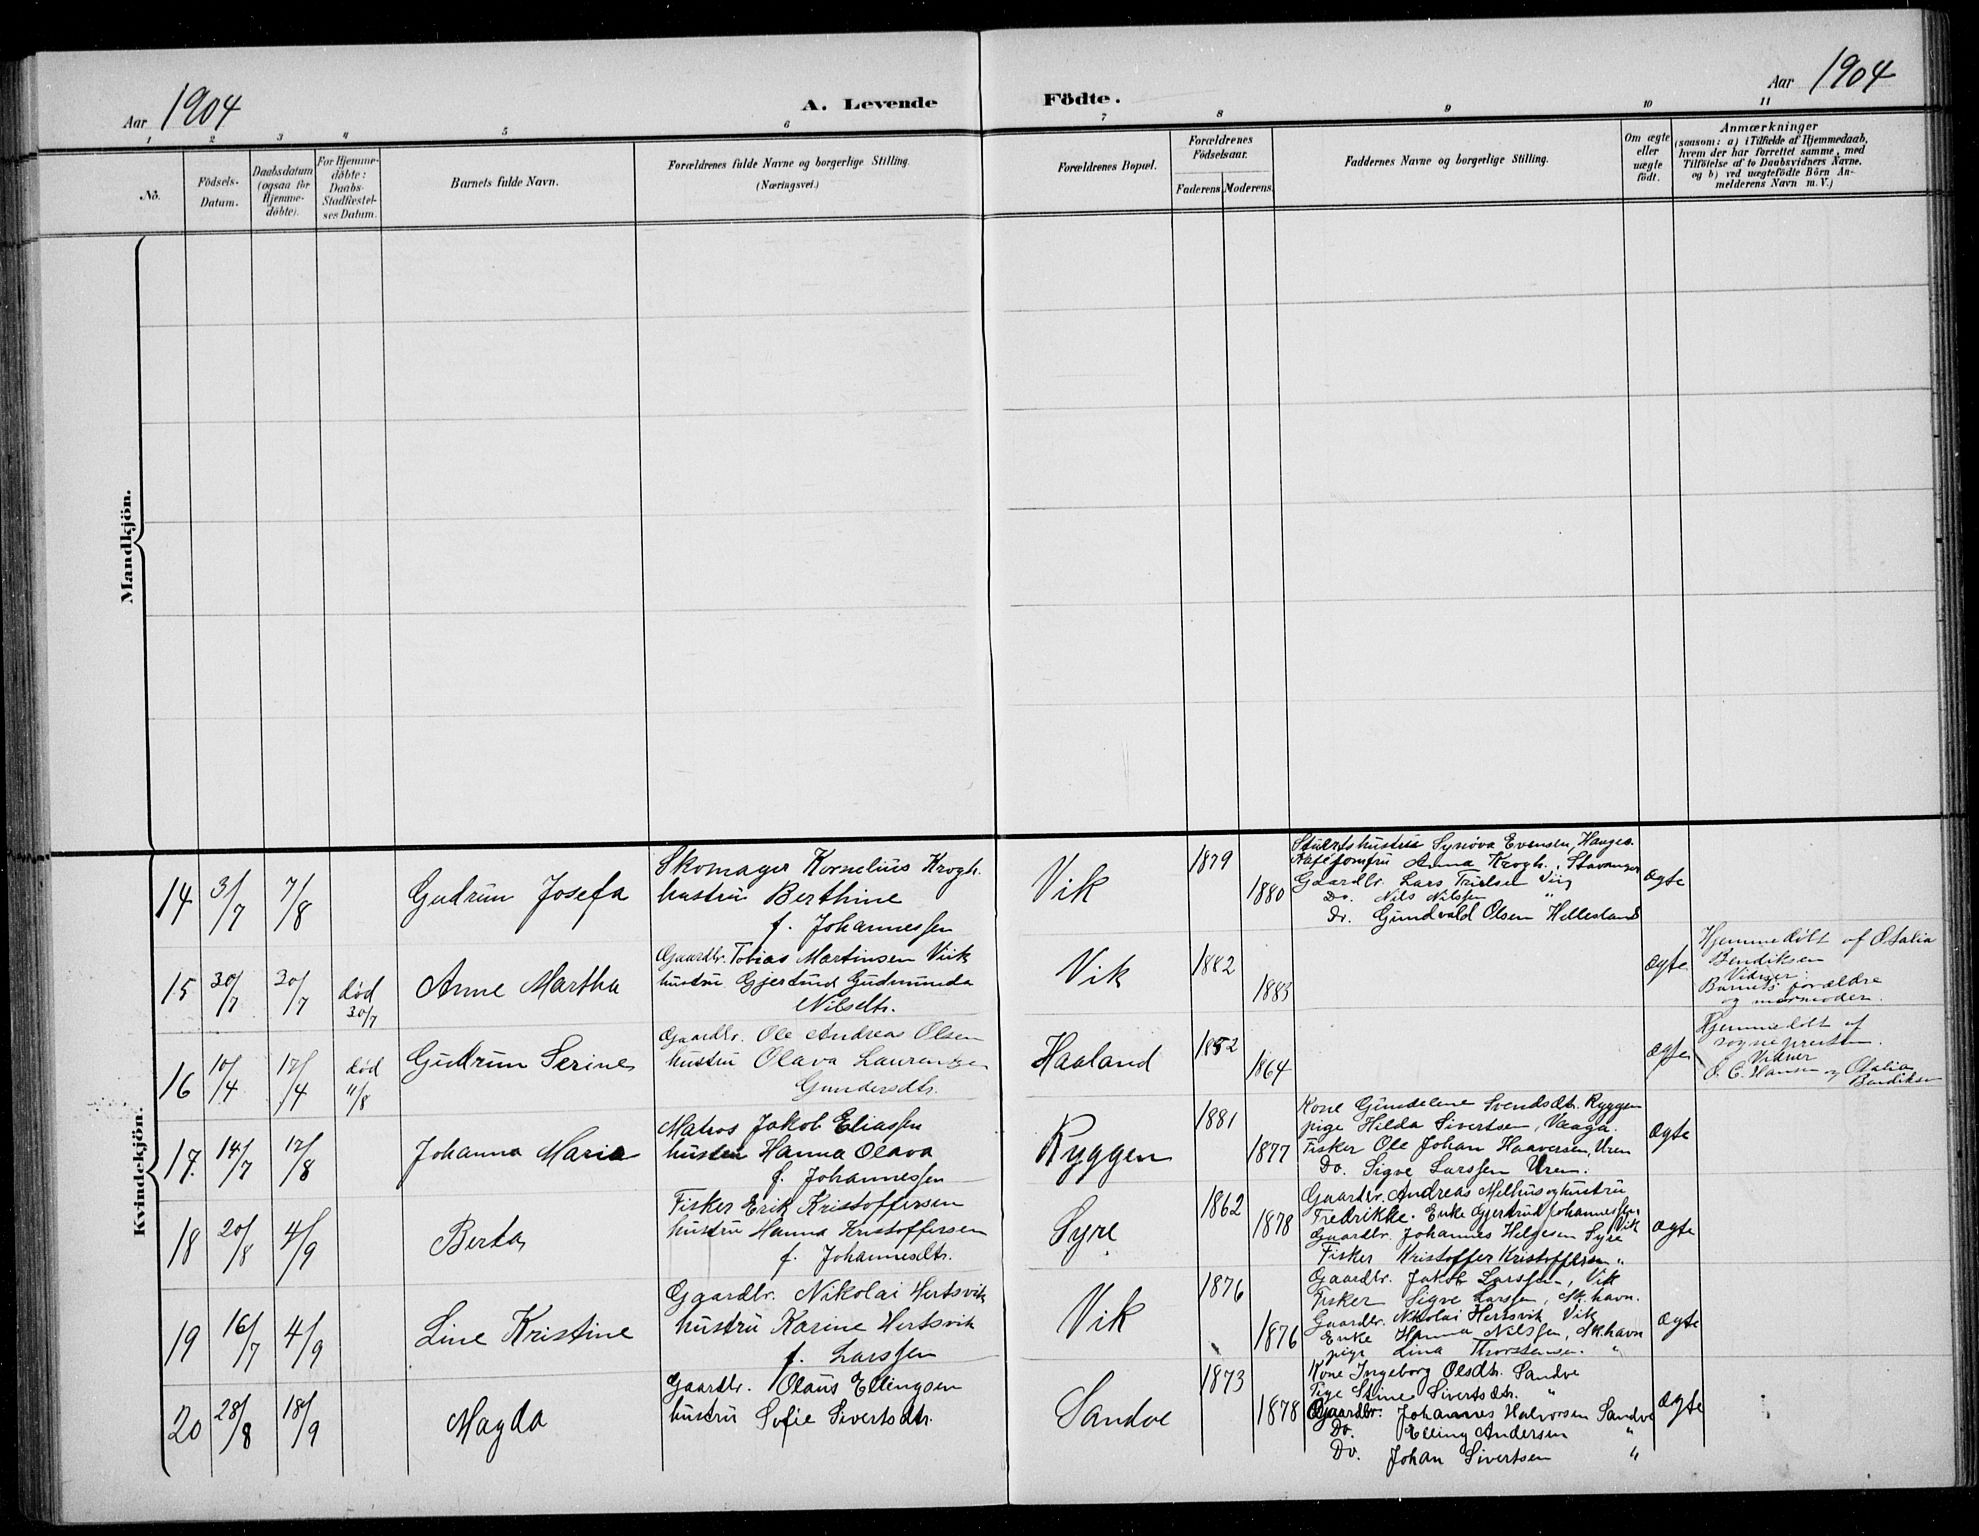 Aar 1904
A. Levende
Födte.
Aar 1904
1 2 3 4 5 6 7 8 9 10 11
No.
Födsels-
Datum.
Daabsdatum
(ogsaa for
Hjemme-
döbte).
For Hjemme-
döbte:
Daabs-
Stadfæstel-
ses Datum.
Barnets fulde Navn.
Forældrenes fulde Navne og borgerlige Stilling.
(Næringsvei.)
Forældrenes Bopæl.
Forældrenes
Födselsaar.
Faderens. Moderens.
Faddernes Navne og borgerlige Stilling.
Om ægte
eller
uægte
födt.
Anmærkninger
(saasom: a) i Tilfælde af Hjemmedaab,
hvem der har forrettet samme, med
Tilföielse af to Daabsvidners Navne.
og b) ved uægtefödte Börn An-
melderens Navn m. V.)
Mandkjön.
Kvindekjön.
14 3/7 7/8
Gudrun Josefa
Skomager Kornelius Krogh.
hustru Berthine
f. Johannessen
Vik
1879
1880
hustru Synöva Evensen, Hauges.
jomfru Anna Krogh. Stavanger
Gaardbr. Lars
Do. Nils Nilssen "
Do. Gundvald Olsen Hillesland
ægte
15 30/7 30/7 död
30/7
Anne Martha
Gaardbr. Tobias Martinsen Viik
hustru Gjertrud Gudmunda
Nilsdtr.
Vik
1882
1883
ægte
Hjemmedöbt af Otalia
Bendiksen
Vidner:
Barnets forældre
og mormoder.
16 10/4 12/4 död
11/8
Gudrun Serine
Gaardbr. Ole Andreas Olsen
hustru Olava
Gundersdtr.
Haaland
1852
1864
ægte
Hjemmedöbt af
sognepresten.
Vidner
O. C. Hansen og Otalia
Bendiksen
17. 14/7 12/8
Johanna Maria
Matros Jakob Eliassen
hustru Hanna Olava
f. Johannessen
Ryggen
1881
1877
Kone Gundelene Svendsdtr. Ryggen
pige Hilda Sivertsen, Vaaga.
Fisker Ole Johan Haaversen, Uren
Do. Sigve Larssen Uren.
ægte
18 20/8 4/9
Berta
Fisker Erik Kristoffersen
hustru Hanna Kristoffersen
f. Johannesdtr.
Syre
1862
1878
Gaardbr. Andreas Melhus og hustru
Fredrikke. Enke Gjertrud Johannessen
Vik
Gaardbr. Johannes Helgesen Syre
Fisker Kristoffer Kristoffersen "
ægte
19 16/7 4/9
Line Kristine
Gaardbr. Nikolai Hertsvik
hustru Karine Hertsvik
f. Larssen
Vik
1876
1876
Gaardbr. Jakob Larssen, Vik
Fisker Sigve Larssen, Sk.havn.
Gaardbr. Nikolai Hertsvik Vik
Enke Hanna Nilssen, Sk.havn
pige Lina Thorstensen. "
ægte
20 28/8 18/9
Magda
Gaardbr. Olaus Ellingsen
hustru Sofie Sivertsdtr.
Sandve
1873
1878
Kone Ingeborg Olsdtr. Sandve
Pige Stine Sivertsdtr. "
Gaardbr. Johannes Halvorsen Sandve
Do. Elling Andersen "
Do. Johan Sivertsen "
ægte